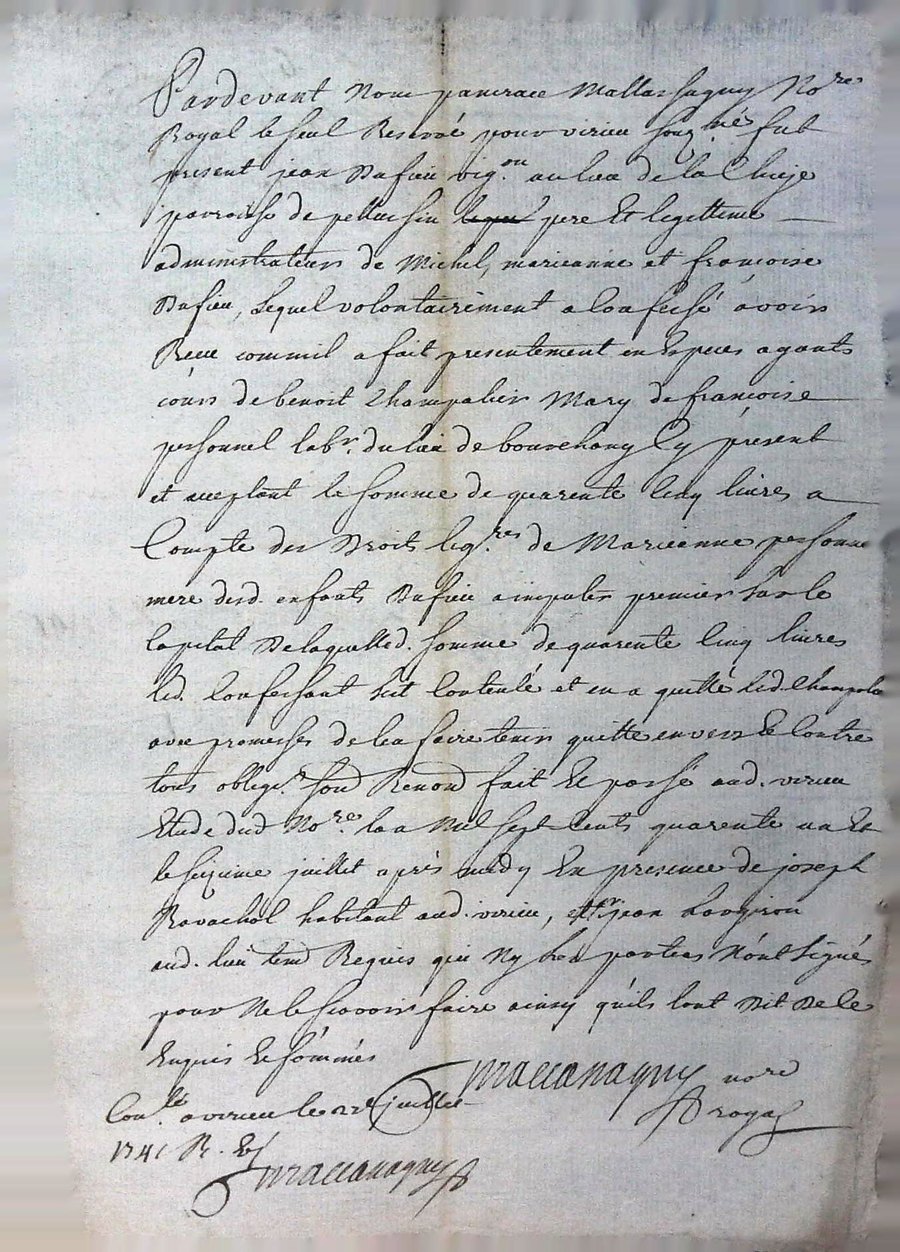 Pardevant Nous pancrace Mallassagny No.re
Royal le seul Reservé pour virieu souz.né fut
present jean Dufieu vig.on au lieu de la Chieze
parroisse de pellussin lequel pere Et legittime
administrateur de Michel, marieanne et francoise
Dufieu, Lequel volontairement a confessé avoir
Receu comm'il a fait presentement en Especes ayants
cours de benoit Champalier Mary de francoise
personnel lab.r du lieu de bourchany Cy present
et acceptant le somme de quarente Cinq livres a
Compte des Droits leg.res de Marieanne personne
mere desd. enfants Dufieu a imputer premier sur le
Capital De laquelled. somme de quarente Cinq livres
led. Confessant sest Contenté et en a quitté led. Champalie
avec promesses de len faire tenir quitte envers Et Contre
tous oblig.n soud Renond fait Et passé aud. virieu
Etude dud No.re lan Mil sept Cents quarente un Et
le sizieme juillet après midy En presence de joseph
Ravachol habitant aud. virieu, et jean
aud. lieu tem.d Requis qui Ny les parties N'ont Signés
pour Ne le scavoir faire ainsy quils lont Dit De ce
Enquis Et sommés
No.re
Royal
Con.lé a virieu le 22e juillet
1741 R. Et